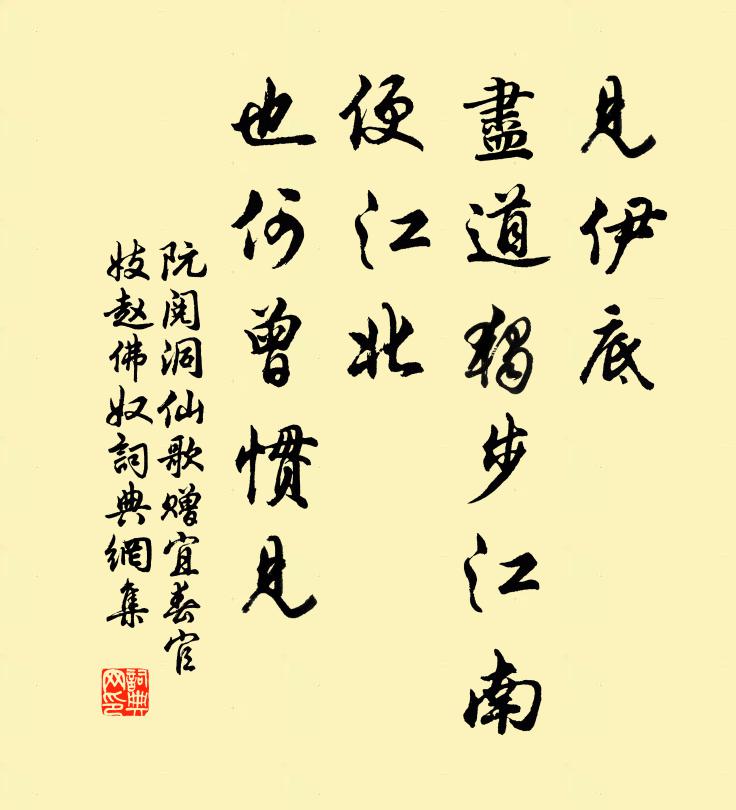 見伊底
盡道獨步江南
便江北
也何曾慣見
阮閱洞仙歌贈宜春官
妓赵佛奴詞典網集
詞典网印